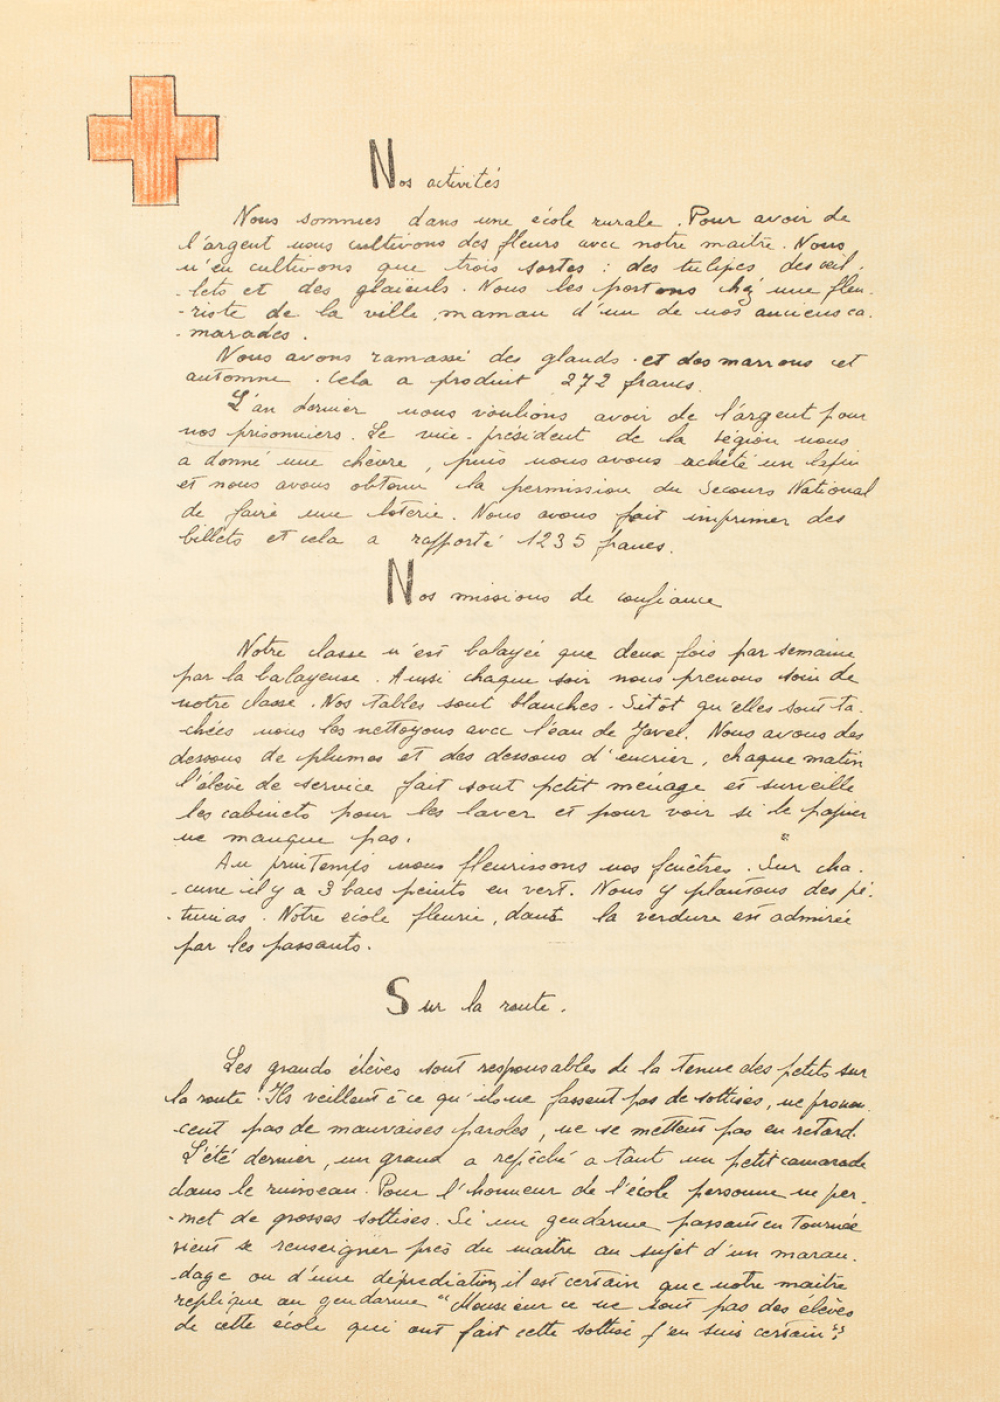 Nos activités
Nous sommes dans une école rurale. Pour avoir de
l'argent nous cultivons des fleurs avec notre maitre. Nous
n'en cultivons que trois sortes : des tulipes, des œil-
-lets et des glaïeuls. Nous les portons chez une fleu-
-riste de la ville, maman d'un de nos anciens ca-
-marades.
Nous avons ramassé des glands et des marrons cet
automne. Cela a produit 272 francs.
L'an dernier nous voulions avoir de l'argent pour
nos prisonniers. Le vice-président de la région nous
a donné une chèvre, puis nous avons acheté un lapin
et nous avons obtenu la permission du Secours National
de faire une loterie. Nous avons fait imprimer des
billets et cela a rapporté 1235 francs.
Nos missions de confiance
Notre classe n'est balayée que deux fois par semaine
par la balayeuse. Aussi chaque soir nous prenons soin de
notre classe. Nos tables sont blanches. Sitôt qu'elles sont ta-
chées nous les nettoyons avec l'eau de Javel. Nous avons des
dessous de plumes et des dessous d'encrier, chaque matin
l'élève de service fait sont petit ménage et surveille
les cabinets pour les laver et pour voir si le papier
ne manque pas.
Au printemps nous fleurissons nos fenêtres. Sur cha-
-cune il y a 3 bacs peints en vert. Nous y plantons des pé-
-tunias. Notre école fleurie, dans la verdure est admirée
par les passants.
Sur la route.
Les grands élèves sont responsables de la tenue des petits sur
la route. Ils veillent à ce qu'ils ne fassent pas de sottises, ne pronon-
cent pas de mauvaises paroles, ne se mettent pas en retard.
L'été dernier, un grand a repêché a tant un petit camarade
dans le ruisseau. Pour l'honneur de l'école personne ne per-
-met de grosses sottises. Si un gendarme passant en tournée
vient se renseigner près du maitre au sujet d'un marau-
-dage ou d'une déprédiation, il est certain que notre maitre
replique au gendarme "Monsieur ce ne sont pas des élèves
de cette école qui ont fait cette sottise j'en suis certain".